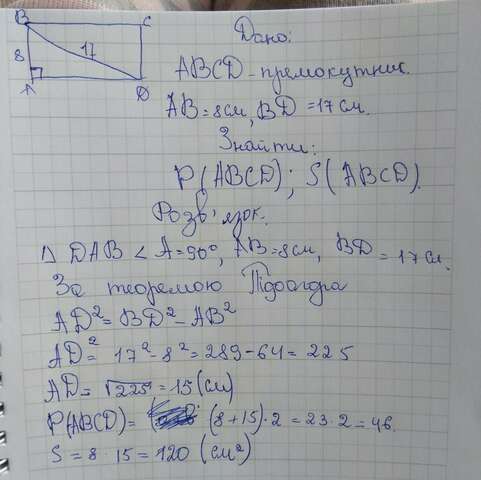 B C
8 17
A D
Дано:
ABCD - прямокутник.
AB=8см, BD=17см.
Знайти:
P(ABCD); S(ABCD).
Розв'язок.
△ DAB ∠A=90°, AB=8см, BD=17см.
За теоремою Піфагора
AD²=BD²-AB²
AD²=17²-8²=289-64=225
AD=√225=15(см)
P(ABCD)= (8+15)·2=23·2=46.
S=8·15=120 (см²)